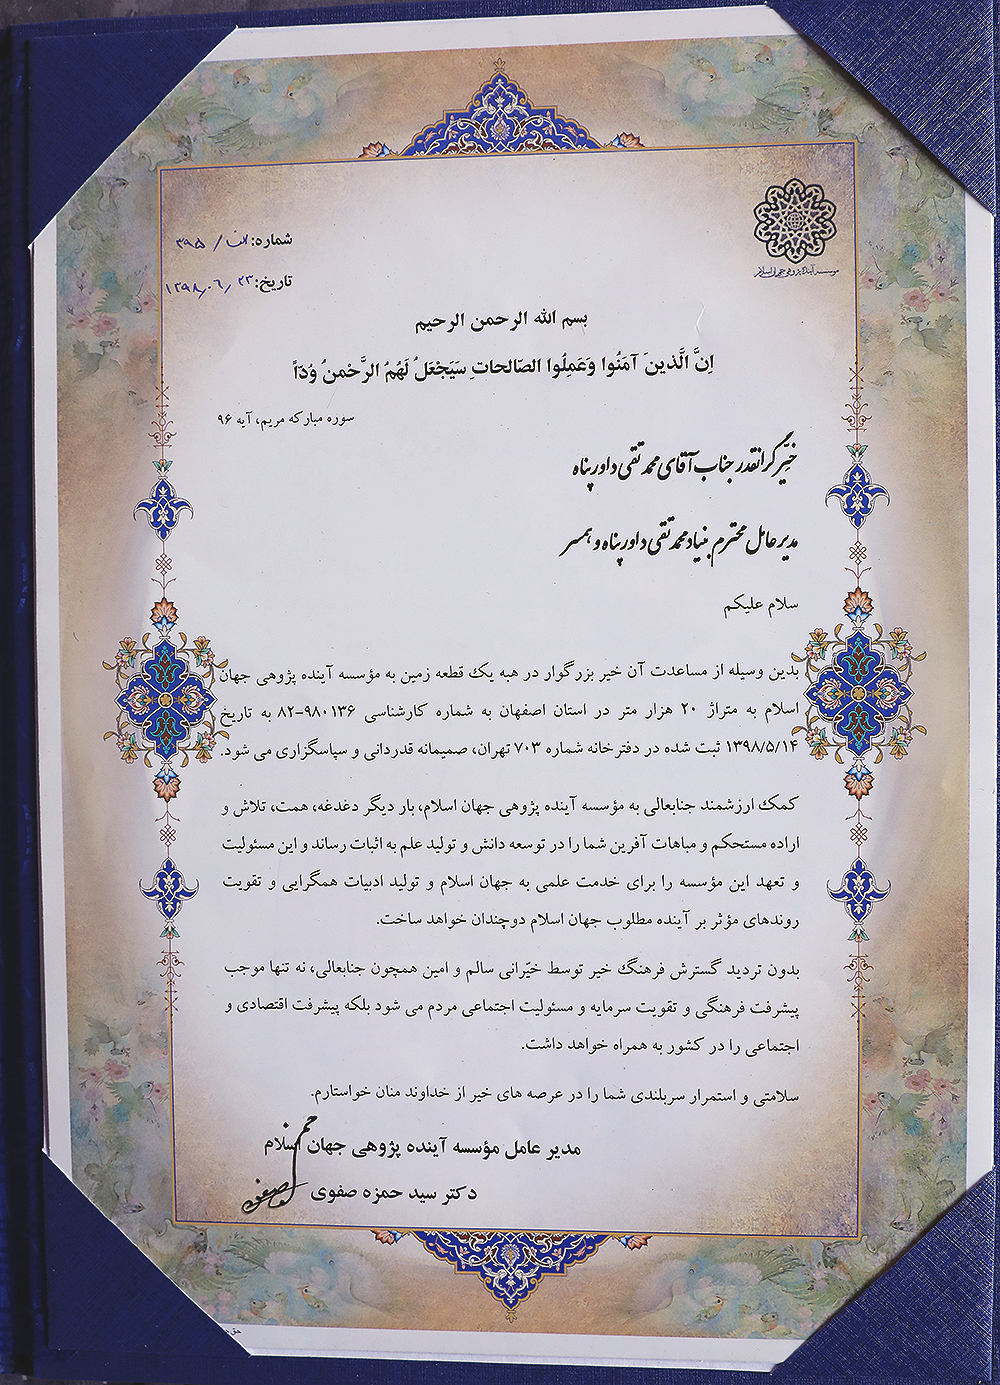 موسسه آینده پژوهی جهان اسلام
شماره: الف / ۳۹۵
تاریخ: ۱۳۹۸/۰۶/۲۳
بسم الله الرحمن الرحیم
اِنَّ الَّذینَ آمَنُوا وَعَمِلُوا الصّالحاتِ سَیَجْعَلُ لَهُمُ الرَّحْمنُ وُدّاً
سوره مبارکه مریم، آیه ۹۶
خیّر گرانقدر جناب آقای محمد تقی داورپناه
مدیر عامل محترم بنیاد محمد تقی داورپناه و همسر
سلام علیکم
بدین وسیله از مساعدت آن خیر بزرگوار در هبه یک قطعه زمین به مؤسسه آینده پژوهی جهان
اسلام به متراژ ۲۰ هزار متر در استان اصفهان به شماره کارشناسی ۹۸۰۱۳۶-۸۲ به تاریخ
۱۳۹۸/۵/۱۴ ثبت شده در دفترخانه شماره ۷۰۳ تهران، صمیمانه قدردانی و سپاسگزاری می شود.
کمک ارزشمند جنابعالی به مؤسسه آینده پژوهی جهان اسلام، بار دیگر دغدغه، همت، تلاش و
اراده مستحکم و مباهات آفرین شما را در توسعه دانش و تولید علم به اثبات رساند و این مسئولیت
و تعهد این مؤسسه را برای خدمت علمی به جهان اسلام و تولید ادبیات همگرایی و تقویت
روندهای مؤثر بر آینده مطلوب جهان اسلام دوچندان خواهد ساخت.
بدون تردید گسترش فرهنگ خیر توسط خیّرانی سالم و امین همچون جنابعالی، نه تنها موجب
پیشرفت فرهنگی و تقویت سرمایه و مسئولیت اجتماعی مردم می شود بلکه پیشرفت اقتصادی و
اجتماعی را در کشور به همراه خواهد داشت.
سلامتی و استمرار سربلندی شما را در عرصه های خیر از خداوند منان خواستارم.
مدیر عامل مؤسسه آینده پژوهی جهان اسلام
دکتر سید حمزه صفوی